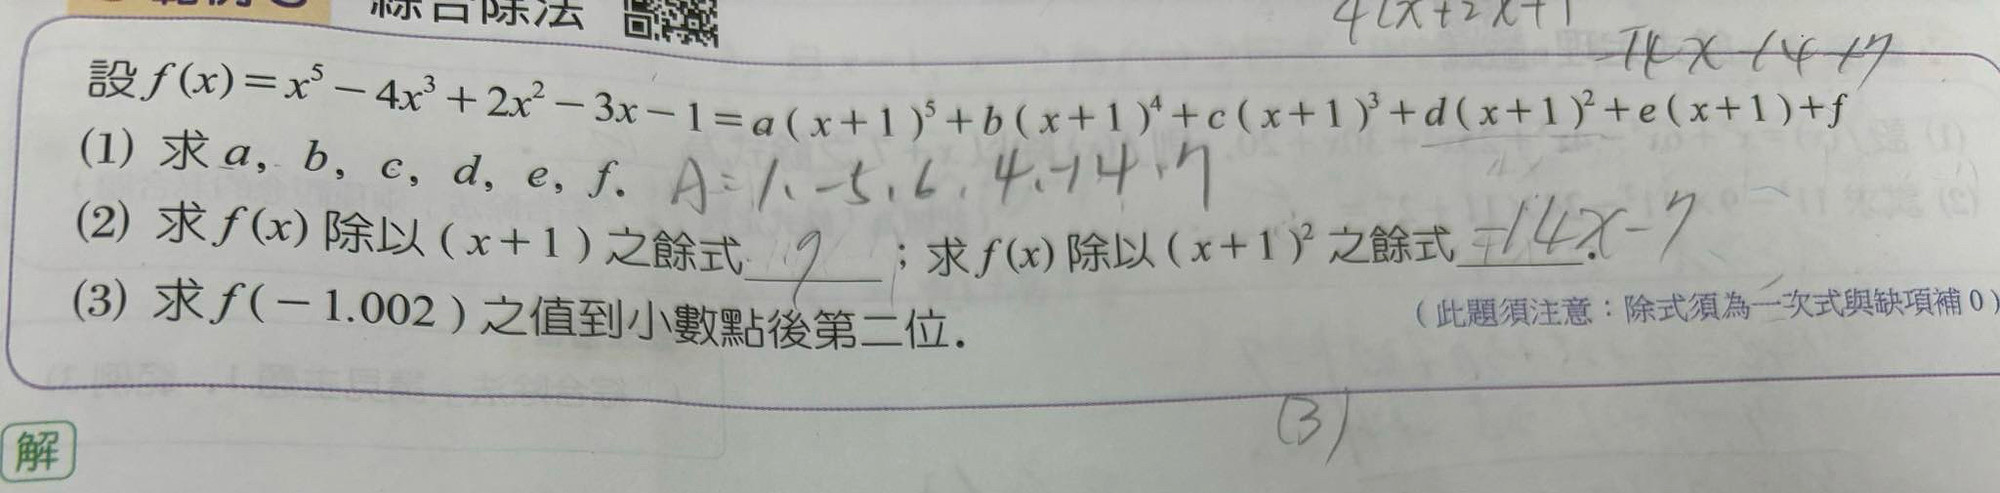 綜合除法
4(x+2x+1
-14x-14+7
設 f(x)=x⁵-4x³+2x²-3x-1=a(x+1)⁵+b(x+1)⁴+c(x+1)³+d(x+1)²+e(x+1)+f
(1) 求 a, b, c, d, e, f. A=1、-5、6、4、-14、7
(2) 求 f(x) 除以 (x+1) 之餘式 7 ; 求 f(x) 除以 (x+1)² 之餘式 -14x-7.
(3) 求 f(-1.002) 之值到小數點後第二位.
(此題須注意:除式須為一次式與缺項補0)
(3)
解